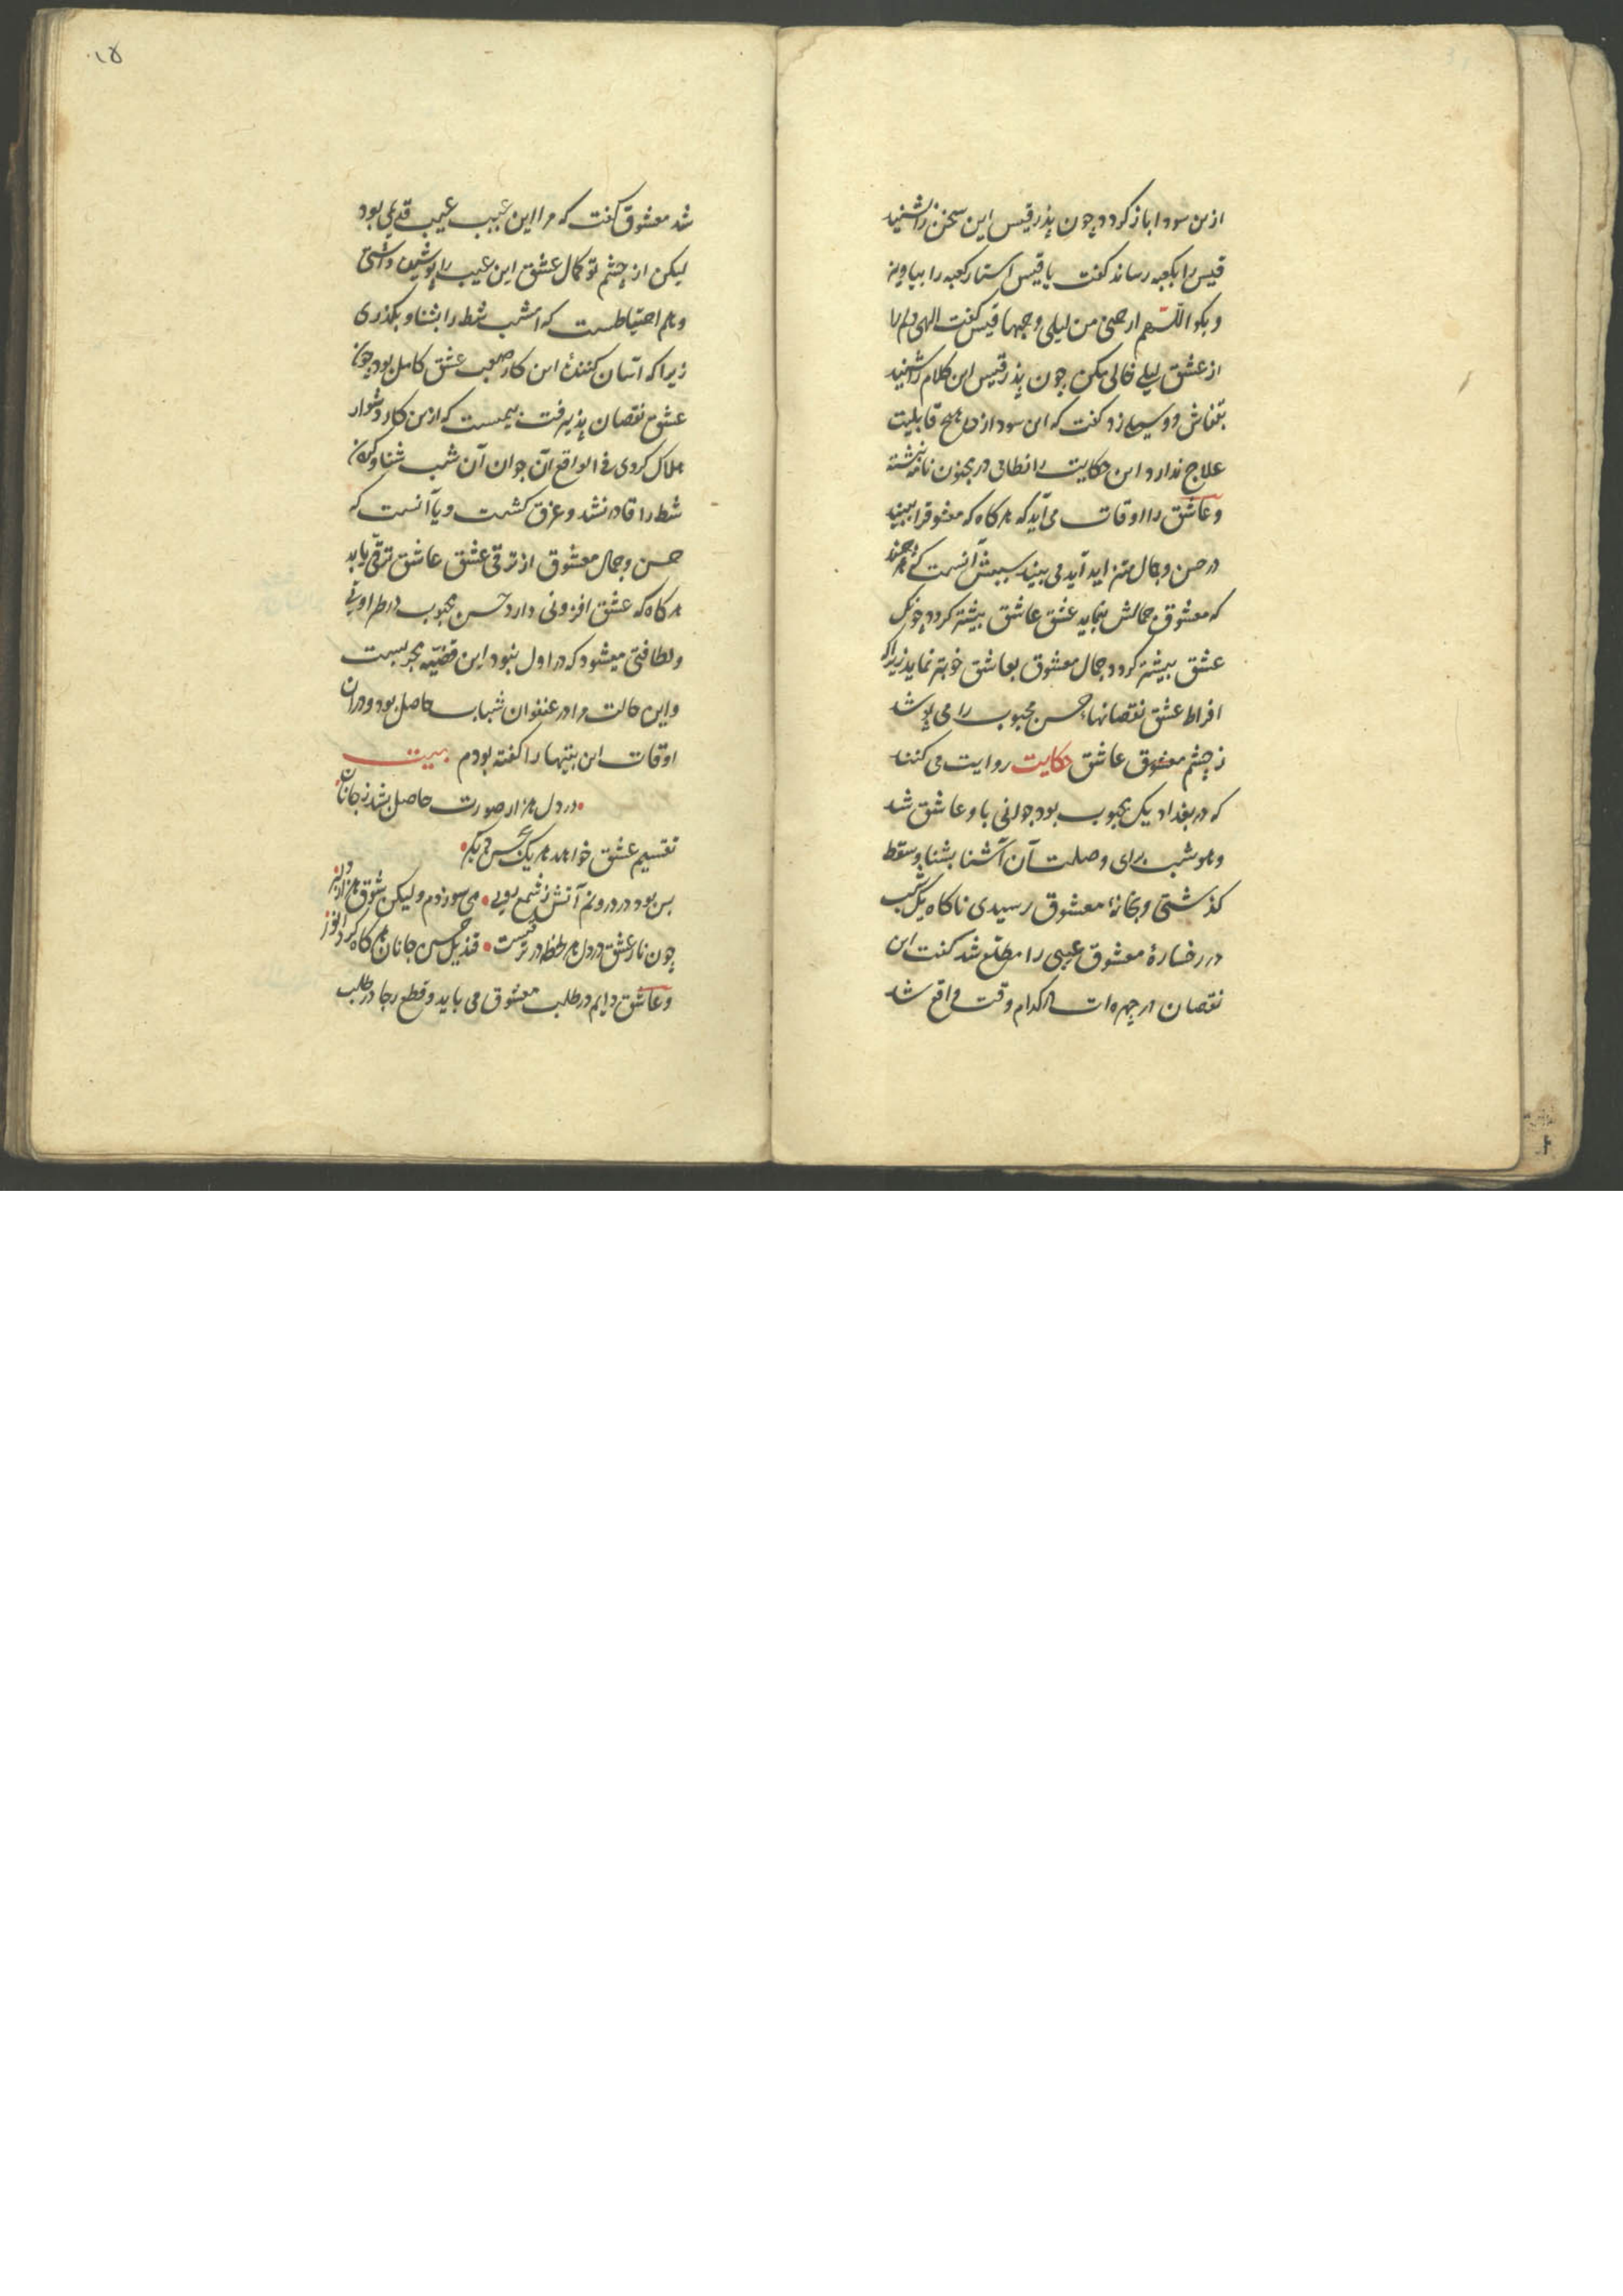 ازین سودا باز کردد چون پذر قیس این سخن را شنید
قیس را بکعبه رساند کفت یا قیس استار کعبه را بیاویز
و بکو اللّهم ارحمنی من لیلی و حبها قیس کفت الهی دلم را
از عشق لیلی خالی مکن چون پذر قیس این کلام را شنید
بقفاش دو سیلی زد کفت که این سودا از دل هیچ قابلیت
علاج ندارد این حکایت را نظامی در مجنون نامه نبشته
و عاشق را اوقات می آید که هر کاه که معشوقرا ببیند
در حسن و جمال متزاید آید می بیند سببش آنست که هر چند
که معشوق جمالش بنماید عشق عاشق بیشتر کردد چونک
عشق بیشتر کردد جمال معشوق بعاشق خوبتر نماید زیرا که
افراط عشق نقصانهاء حسن محبوب را می پوشد
ز چشم معشوق عاشق حکایت روایت می کنند
که در بغداد یک محبوب بود جوانی باو عاشق شد
و هر شب برای وصلت آن آشنا بشناو سقط
کذشتی و بخانهٔ معشوق رسیدی ناکاه یک شب
در رخسارهٔ معشوق عیبی را مطلع شد کفت این
نقصان در چهره ات از کدام وقت واقع شد
۱۵
شد معشوق کفت که مرا این عیب عیب قدیمی بود
لیکن از چشم تو کمال عشق این عیب را پوشیده داشتی
و هم احتیاطست که امشب شط را بشناو بکذری
زیرا که آسان کنندهٔ این کار صعب عشق کامل بود چون
عشق نقصان پذیرفت بیمست که ازین کار دشوار
هلاک کردی فی الواقع آن جوان آن شب شناو کردن
شط را قادر نشد و غرق کشت و یا آنست که
حسن و جمال معشوق از ترقی عشق عاشق ترقی یابد
هر کاه که عشق افزونی دارد حسن محبوب در طراوتی
و لطافتی میشود که در اول نبود این قضیّه مجربست
و این حالت مرا در عنفوان شباب حاصل بود و در آن
اوقات این بیتها را کفته بودم بیت
در دل هزار صورت حاصل بشد ز جانان
تقسیم عشق خواهد هر یک بحسن دیکر
بس بود در درونم آتش ز شمع رویی می سوزدم ولیکن شوق هزار دلبر
چون نار عشق در دل هر لحظه در ترقیست قندیل حسن جانان هر کاه کردد انور
و عاشق دایم در طلب معشوق می باید و قطع رجا در طلب